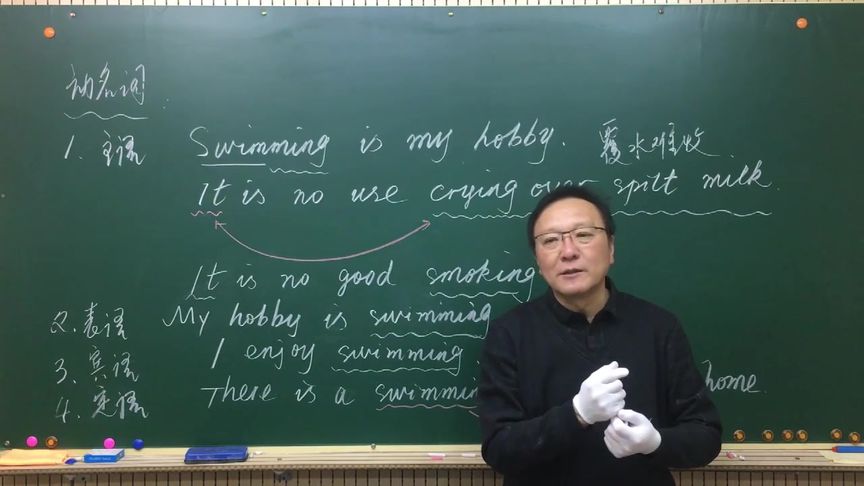 动名词
1. 主语 Swimming is my hobby. 覆水难收
It is no use crying over spilt milk.
It is no good smoking
2. 表语 My hobby is swimming
3. 宾语 I enjoy swimming
4. 定语 There is a swimmin home.